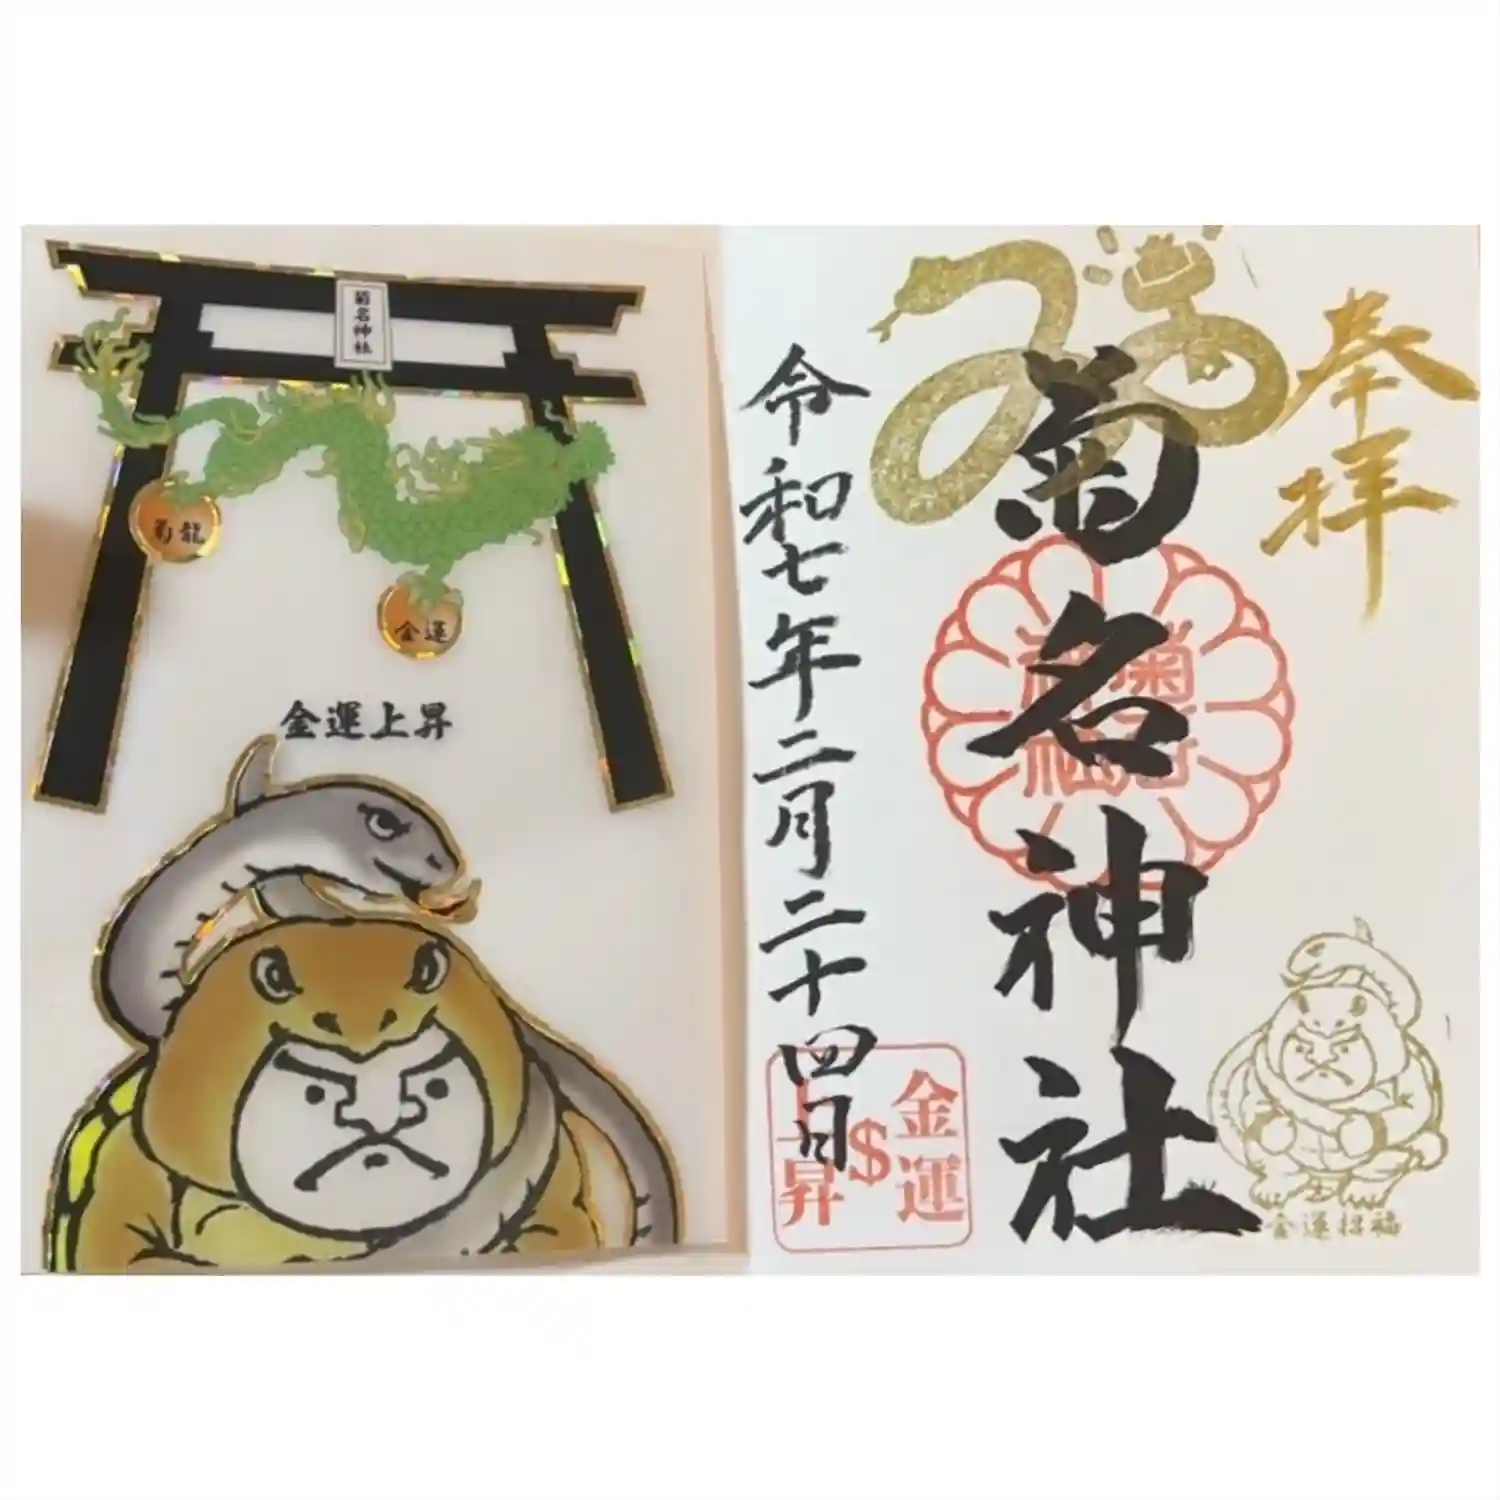 菊名神社
菊龍
金運
金運上昇
奉拝
菊名神社
令和七年二月二十四日
金運
$
上昇
金運招福